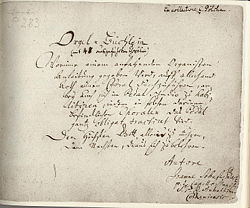 Orgel-Büchlein
Worinne einem anfahenden Organisten
Anleitung gegeben wird, auff allerhand
Arth einen Choral durchzuführen, an-
bey auch sich im Pedal studio zu habi-
litiren, indem in solchen darinne
befindlichen Choralen das Pedal
gantz obligat tractiret wird.
Dem Höchsten Gott allein zu Ehren,
Dem Nechsten, draus sich zu belehren.
Autore
Joanne Sebast. Bach